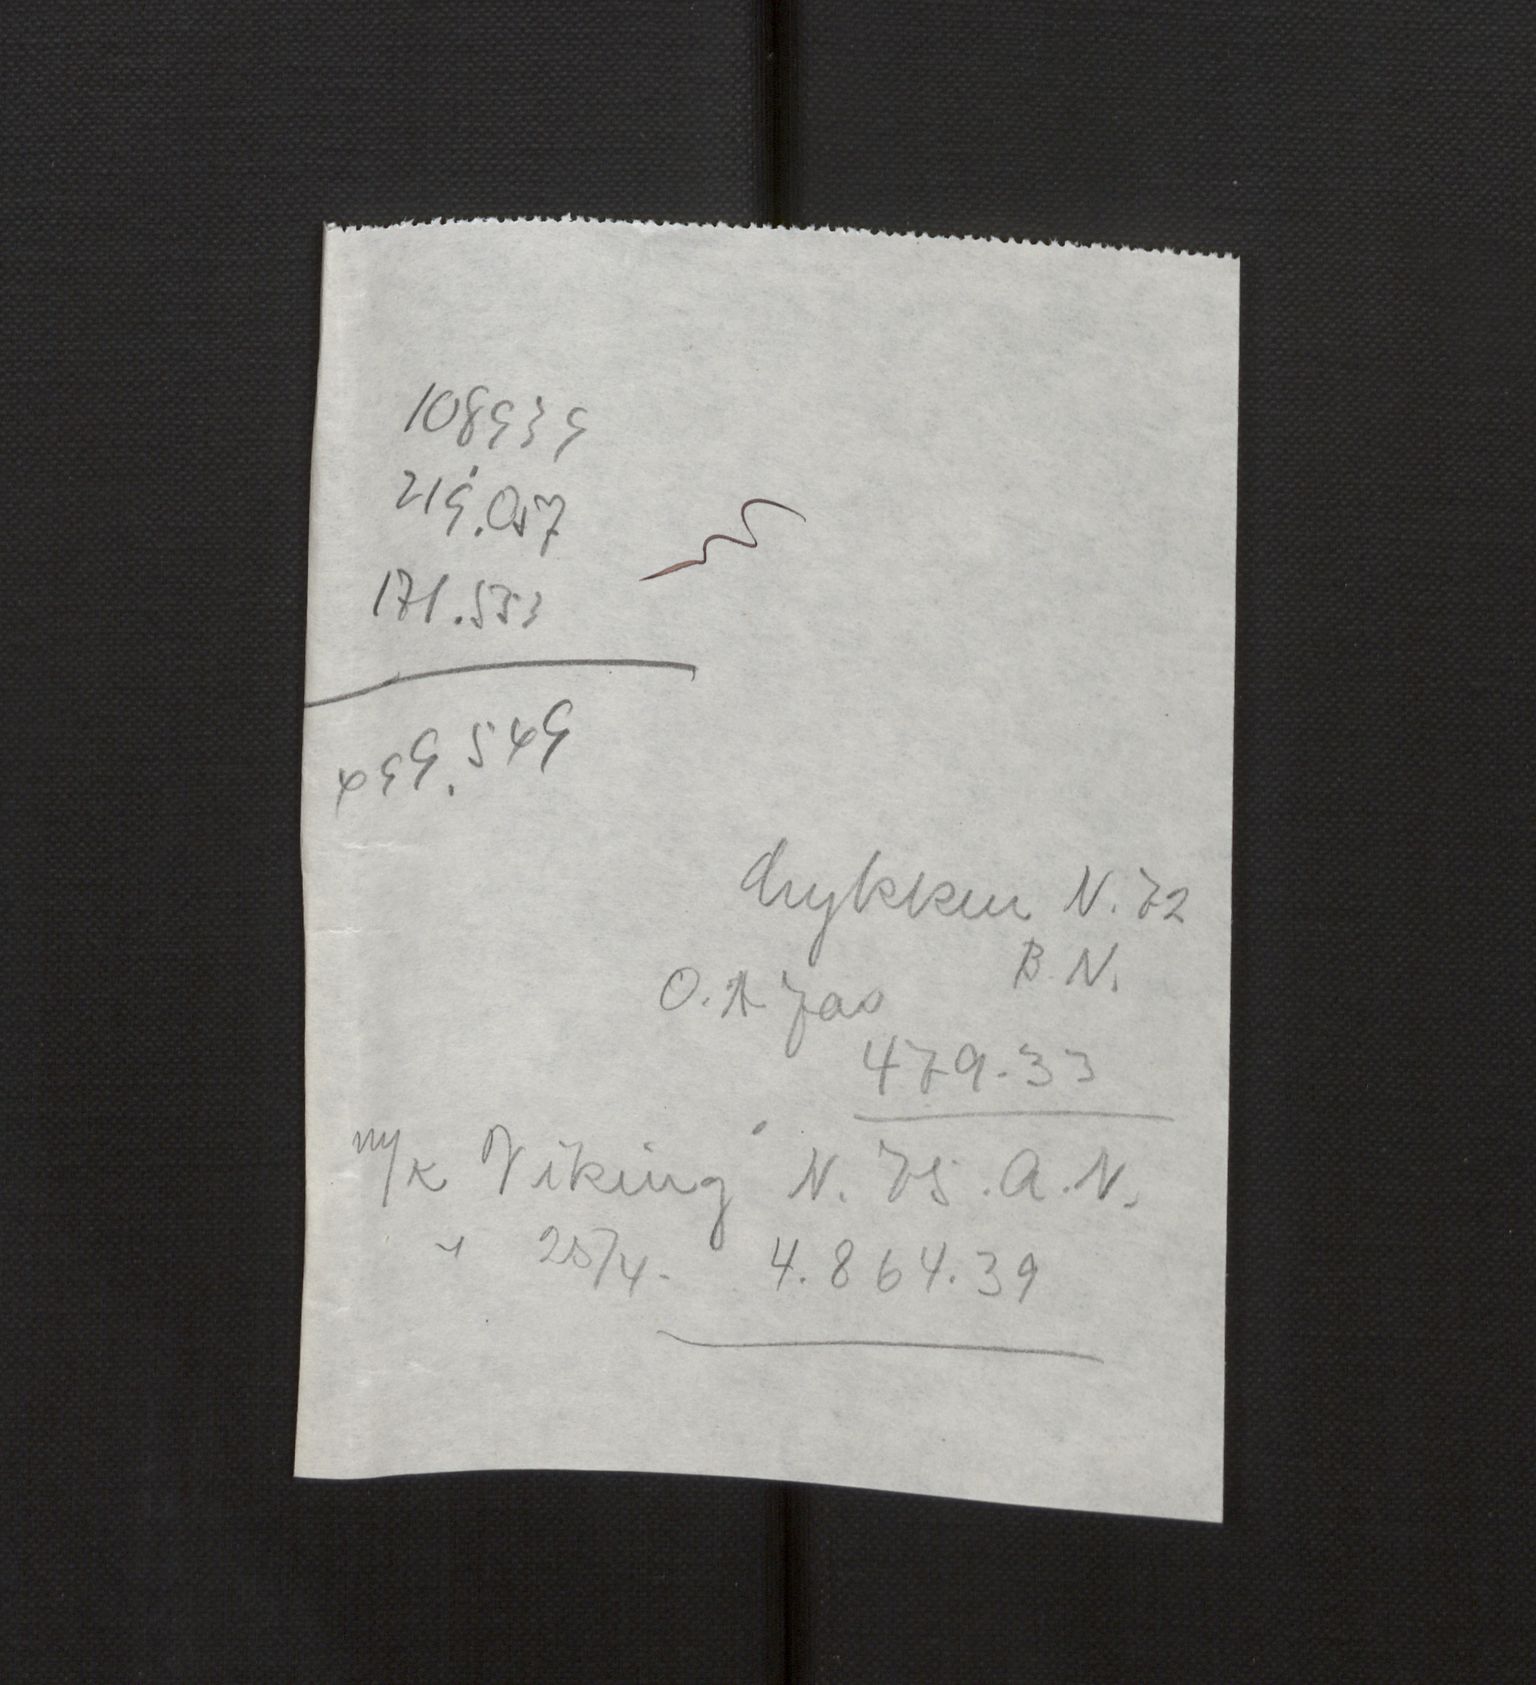 108939
219.057
171.553
499.549
N. 72
B. N.
O. A
479.33
m/k Viking" N. 75. A. N.
" 25/4. 4.864.39